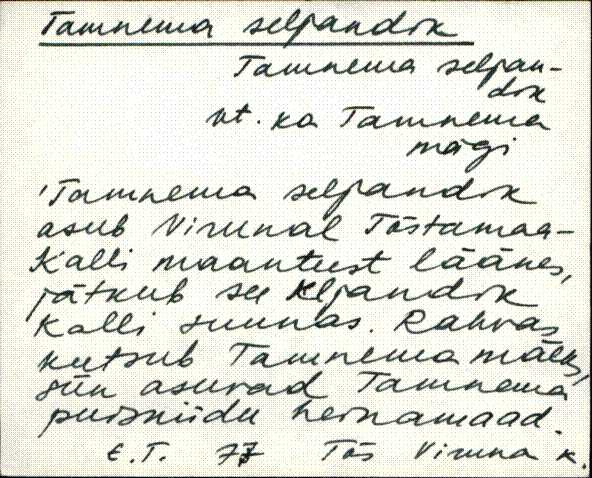 Tamnema seljandik
Tamnema seljan-
dik
vt. ka Tamnema
mägi
'Tamnema seljandik
asub Virunal Tõstamaa-
Kalli maanteest läänes,
jätkub see seljandik
Kalli suunas. Rahvas
kutsub Tamnema mäeks,
siin asuvad Tamnema
puisniidu heinamaad.
E.T. 77 Tõs Viruna k.